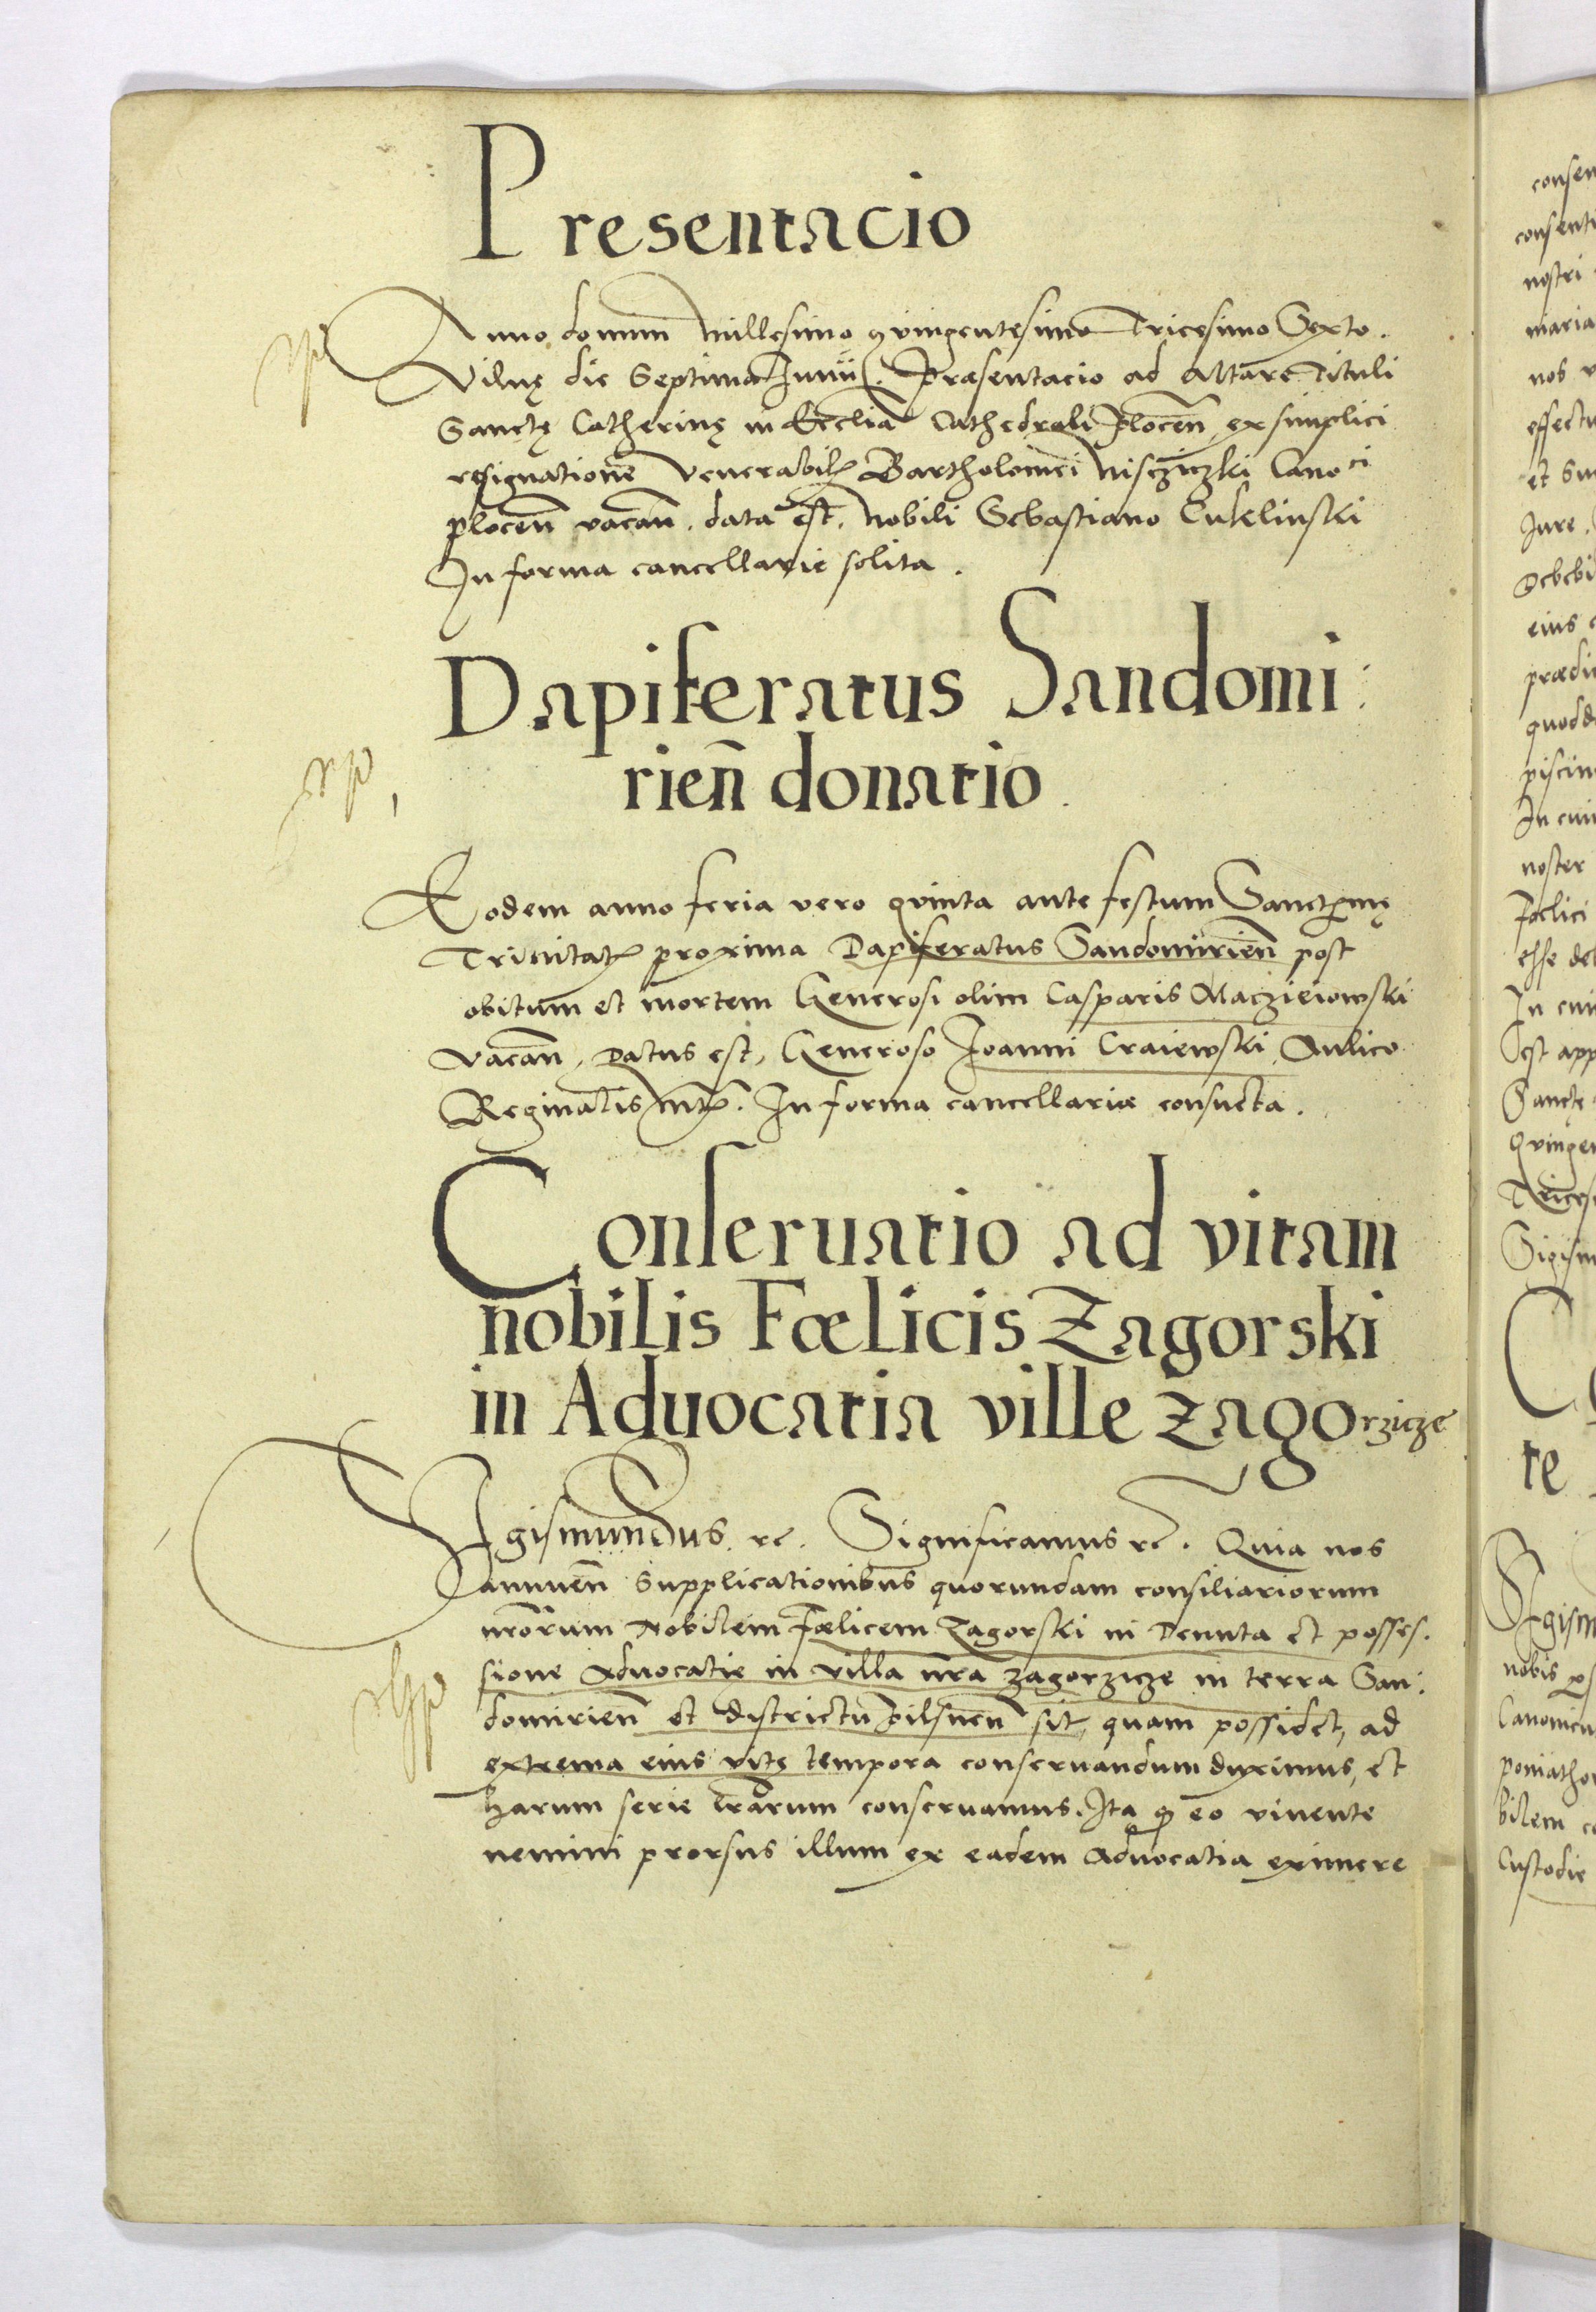 Presentacio
Anno domini millesimo quingentesimo Tricesimo Sexto.
Vilnę die Septima Junii. Præsentacio ad Altare Tituli
Sanctę Catherinę in Ecclia Cathedrali Plocen̄ ex simplici
resignatione Venerabilis Bartholomei Nisczizki Canoci
plocen̄ vacan̄. data est. Nobili Sebastiano Cuklinski
In forma cancellarie solita.
Dapiferatus Sandomi:
rien̄ donatio.
Eodem anno feria vero quinta ante festum Sanctissimę
Trinitatis proxima Dapiferatus Sandomirien̄ post
obitum et mortem Generosi olim Casparis Maczieiowski
vacan̄, Datus est, Generoso Joanni Craiewski Aulico
Reginalis Mtis. In forma cancellariæ consueta.
Conseruatio ad vitam
nobilis Fœlicis Zagorski
in Aduocatia ville Zagorzicze
Sigismundus. rc. Significamus rc. Quia nos
annuen̄ Supplicationibus quorundam consiliariorum
nr̄orum Nobilem Fœlicem Zagorski in Tenuta et posses.
sione Aduocatie in villa nr̄a Zagorzicze in terra San:
domirien̄ et districtu Pilsnen̄ sit, quam possidet, ad
extrema eius vitę tempora conseruandum duximus, et
harum serie lr̄arum conseruamus. Ita q̃ eo viuente
nemini prorsus illum ex eadem Aduocatia eximere
consen
consenti
nostri
maria
nos
effectu
et Su
Jure.
Debebi
eius
prædic
quodd
piscin
In cui
noster
Fœlici
esse
In cui
est app
Sancte
Quinge
Trices
Sigism
te
Sigism
nobis
Canonicu
poniatho
bilem
Custodie